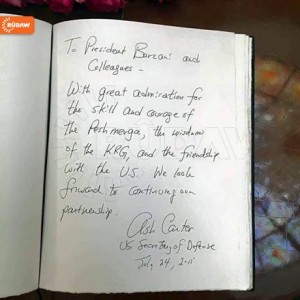 RÛDAW
To President Barzani and
Colleagues -
With great admiration for
the skill and courage of
the Peshmerga, the wisdom
of the KRG, and the friendship
with the US. We look
forward to continuing our
partnership.
Ash Carter
US Secretary of Defense
July 24, 2015